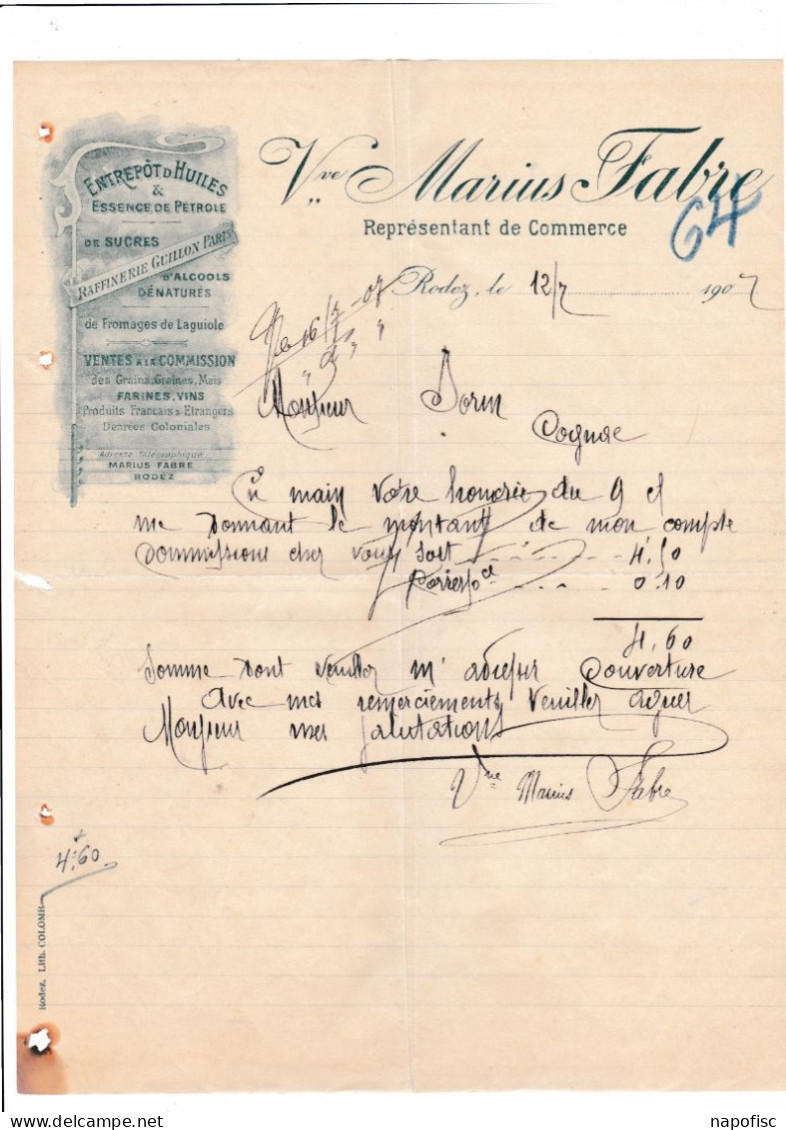 Vve Marius Fabre
Représentant de Commerce
64
Rodez, le 12/7 1907
ENTREPÔT D'HUILES
&
ESSENCE DE PÉTROLE
DE SUCRES
RAFFINERIE GUILLON PARIS
D'ALCOOLS
DÉNATURÉS
de Fromages de Laguiole
VENTES A LA COMMISSION
des Grains, Graines, Maïs
FARINES, VINS
Produits Français & Etrangers
Denrées Coloniales
Adresse Télégraphique
MARIUS FABRE
RODEZ
16/7 07
Monsieur Dorin
Cognac
En main votre honorée du 9 ct
me donnant le montant de mon compte
Commissions chez vous soit 4.50
Correspce 0.10
4,60
Somme dont veuillez m'adresser Couverture
avec mes remerciements veuillez agréer
Monsieur mes salutations
Vve Marius Fabre
4.60
Rodez, Lith. COLOMB
napofisc